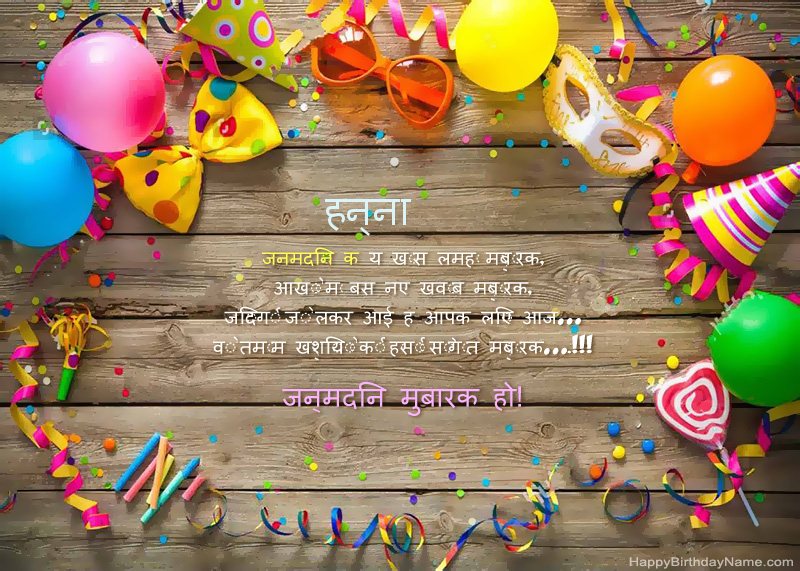 हन्ना
जनमदिन क य ख़ास लमहा मबारक,
आखों म बस नए खवाब मबारक,
जदिंगी जो लकर आई ह आपक लिए आज...
वो तमाम खशियों की हसीं सौगात मबारक...!!!
जन्मदिन मुबारक हो!
HappyBirthdayName.com